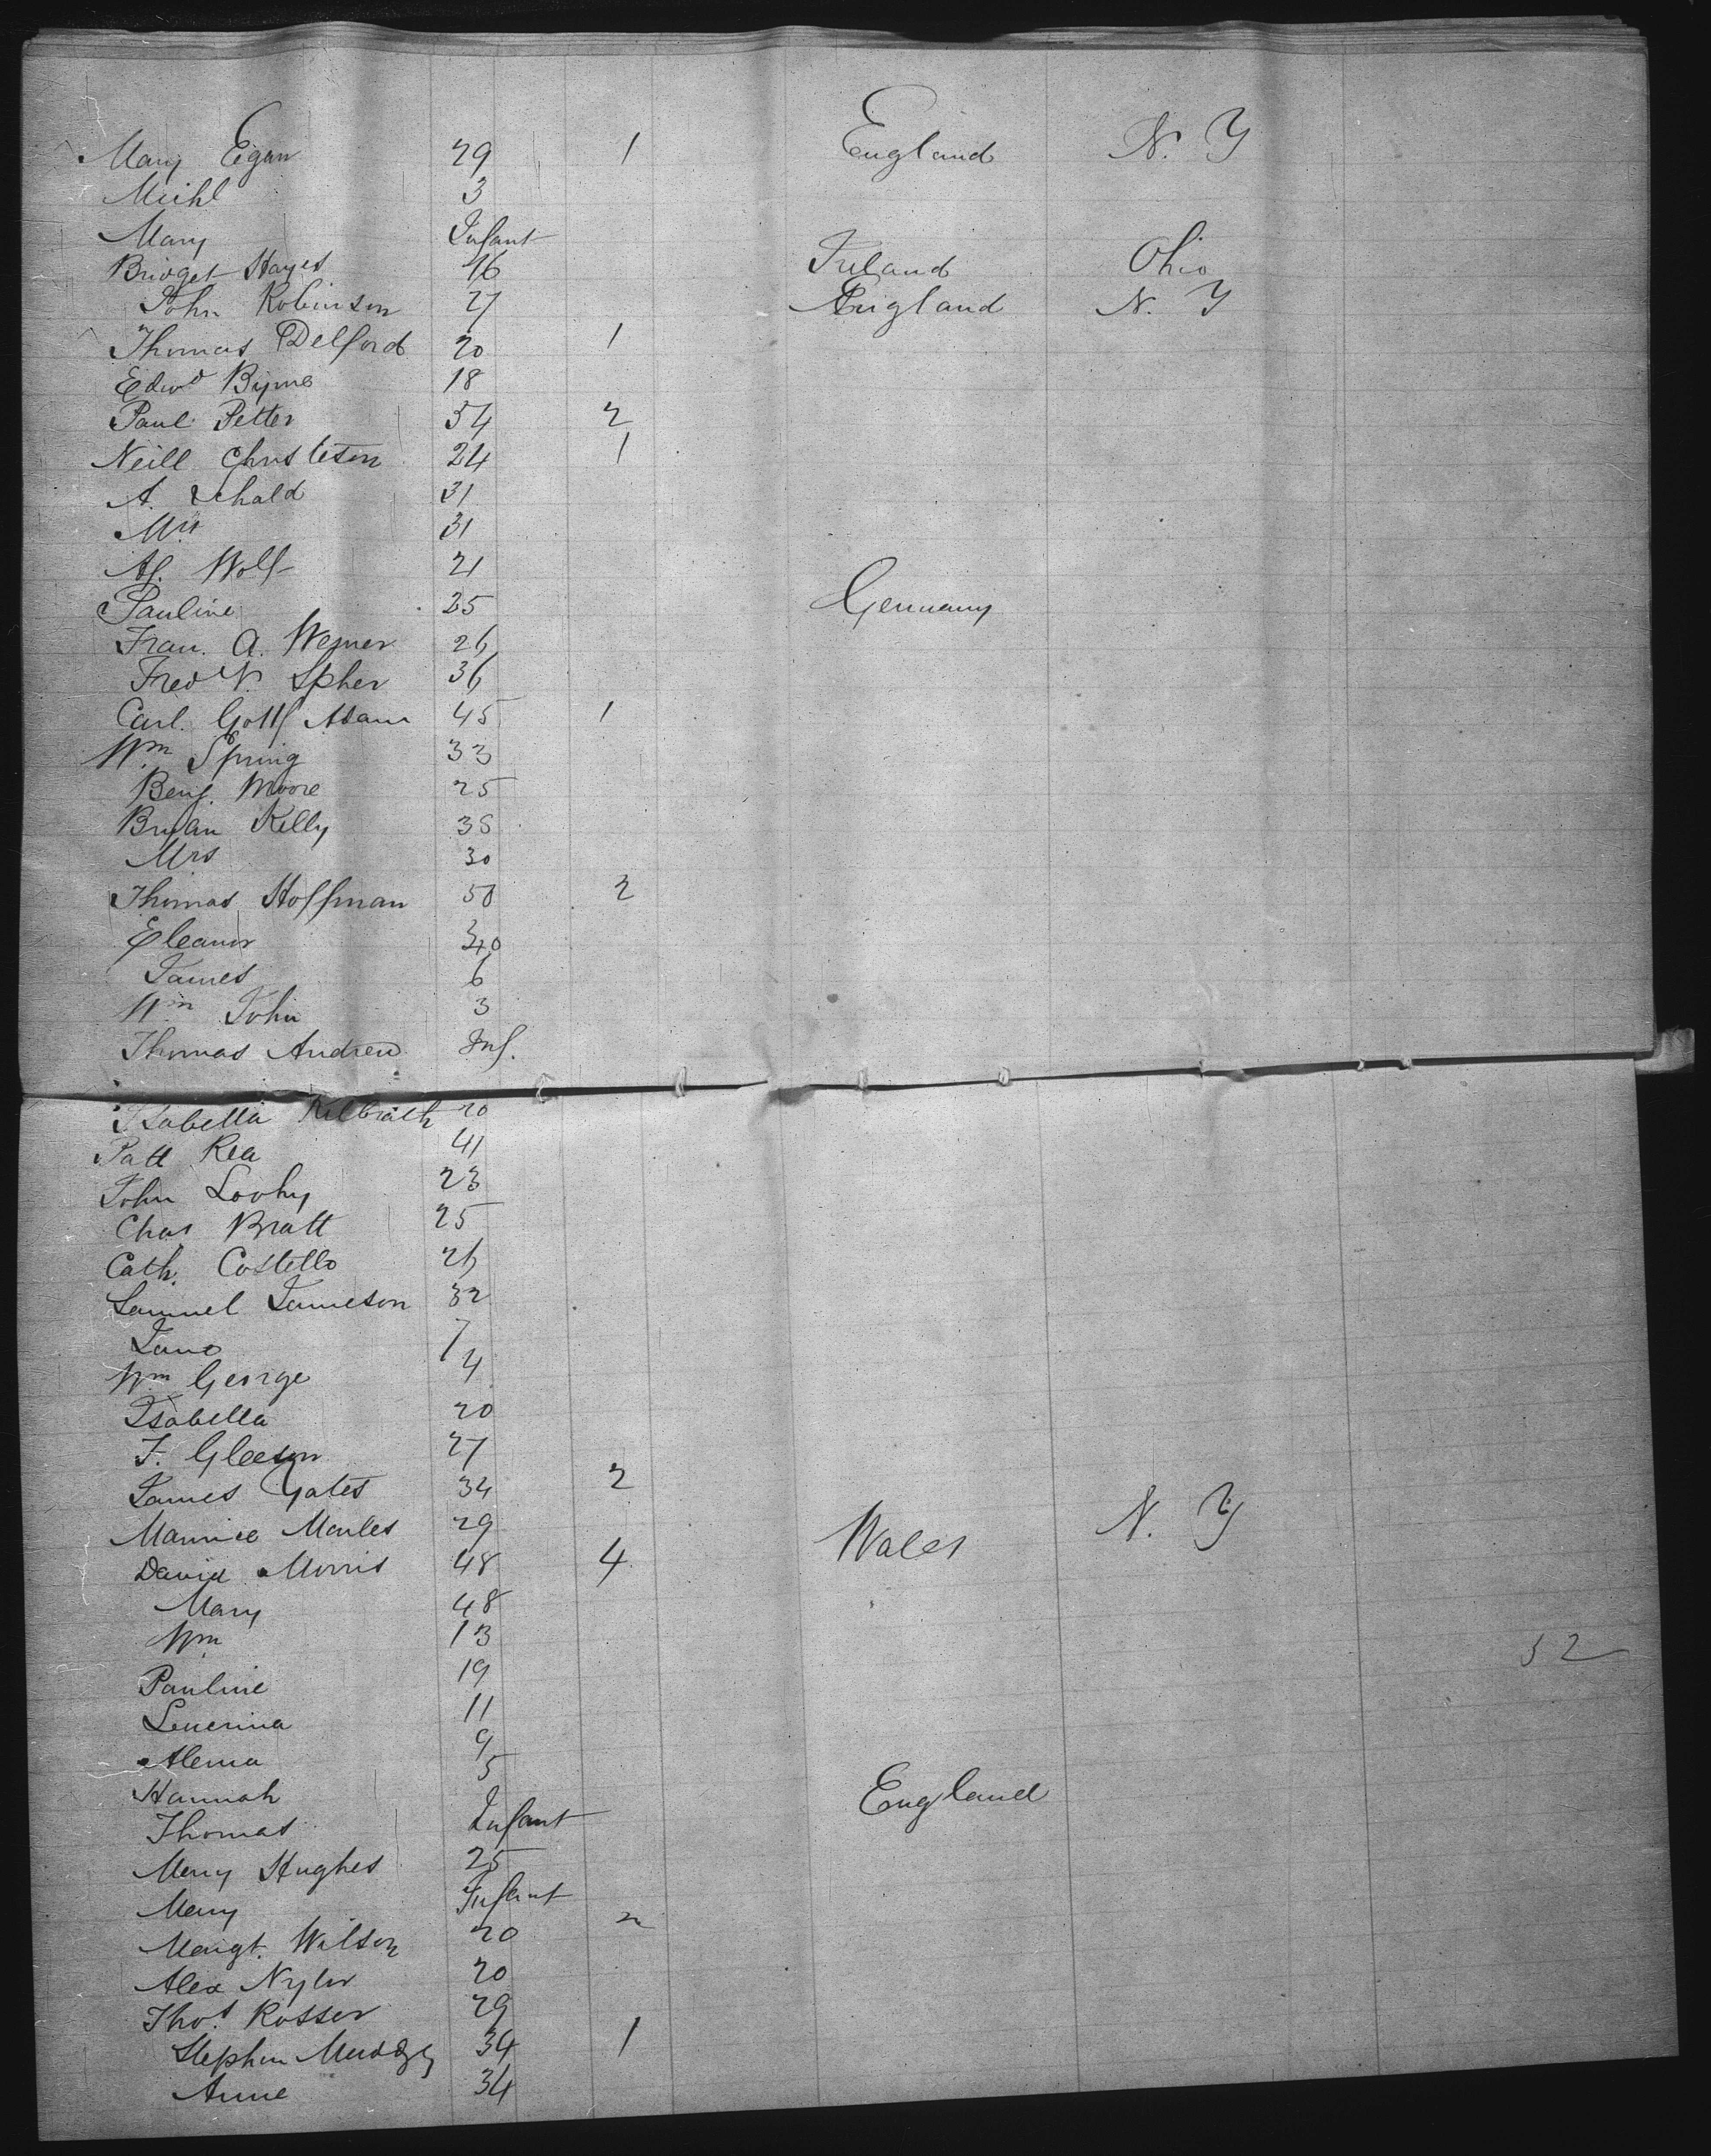 Mary Egan 29 1 England N. Y
Michl 3
Mary Infant
Bridget Hayes 16 Ireland Ohio
John Robinson 27 England N. Y
Thomas Delford 20 1
Edwd Byrne 18
Paul Petter 34 2
Neill Christeson 24 1
A. Schald 31
Mrs 31
Af. Wolf 21
Pauline 25 Germany
Fran. A. Werner 26
Fred N. Spher 36
Carl. Gottf Adam 45 1
Wm Spring 33
Benj. Moore 25
Bryan Kelly 35
Mrs 30
Thomas Hoffman 50 2
Eleanor 30
James 6
Wm John 3
Thomas Andrew Inf.
Isabella Kilbrath 20
Patt Rea 41
John Loohy 23
Chas Bratt 25
Cath. Costello 26
Samuel Jameson 32
Jane 7
Wm George 4
Isabella 20
J. Gleeson 27
James Yates 34 2
Maurice Marles 29 Wales N. Y
David Morris 48 4
Mary 48
Wm 13
Pauline 19 52
Leuerina 11
Alema 9
Hannah 5 England
Thomas Infant
Mery Hughes 25
Mery Infant
Margt. Wilson 20 2
Alex Nyler 20
Thos. Rosser 29
Stephen Muddy 34 1
Anne 34